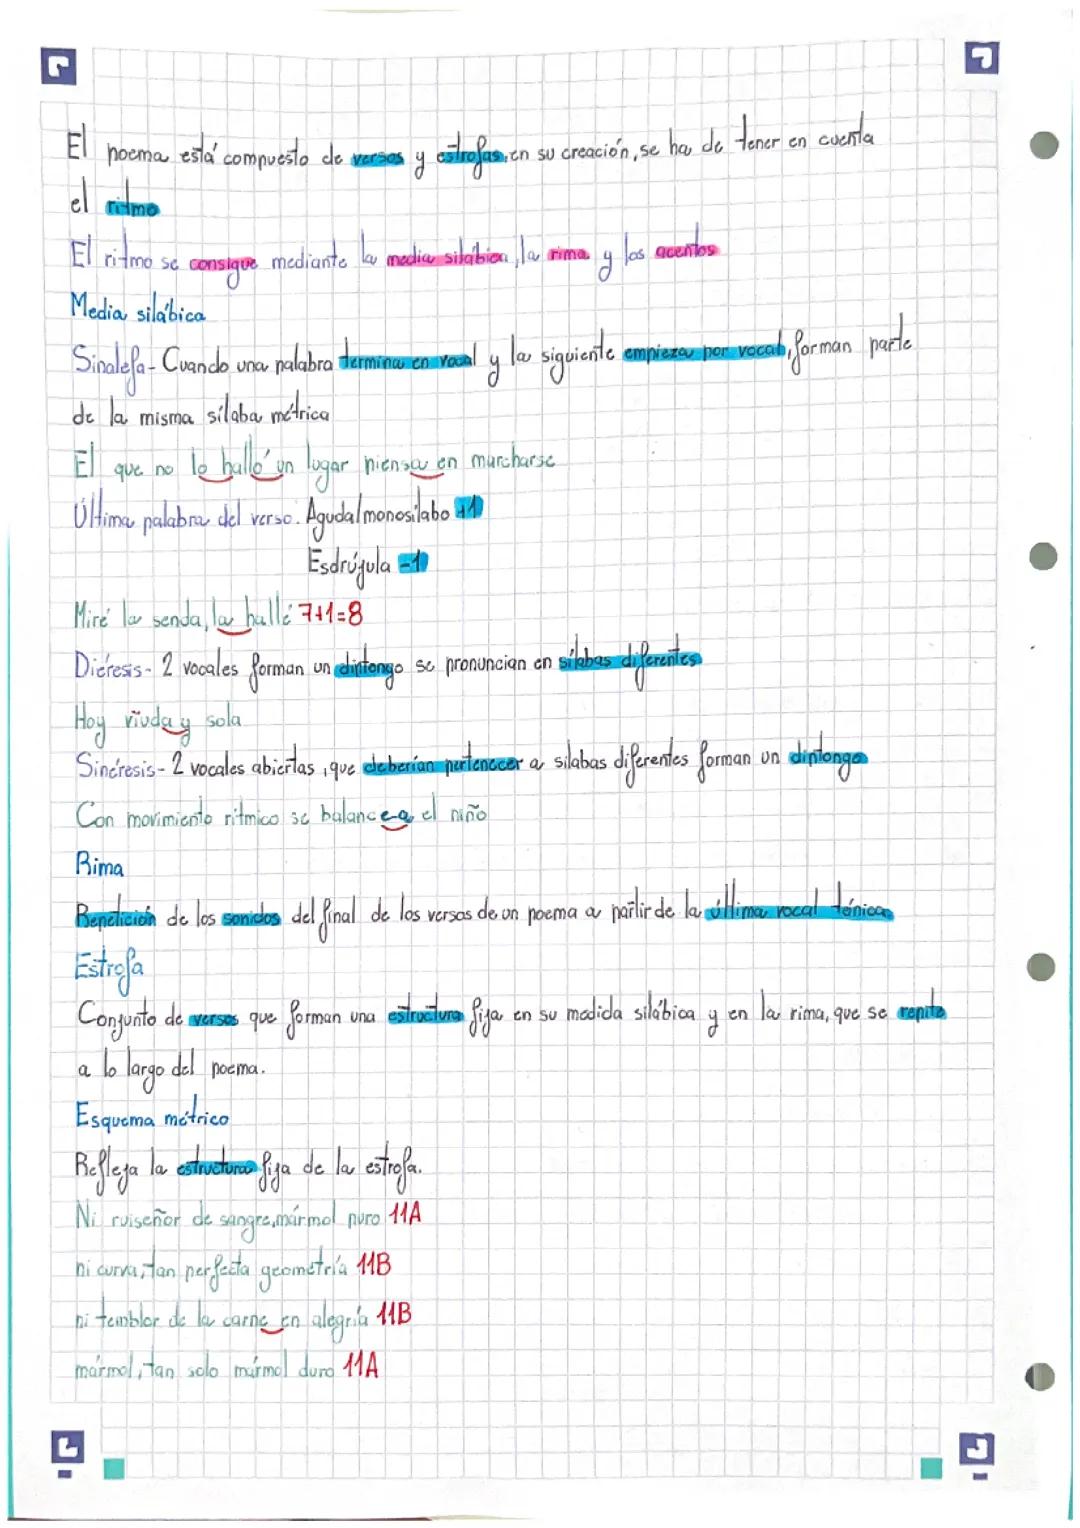 El poema está compuesto de versos y estrofas, en su creación, se ha de tener en cuenta
el ritmo
El ritmo se consigue mediante la media silábica, la rima y los acentos
Media silábica
Sinalefa- Cuando una palabra termina en vocal y la siguiente empieza por vocal, forman parte
de la misma sílaba métrica
El que no lo halló un lugar piensa en marcharse
Última palabra del verso. Aguda/monosílabo +1
Esdrújula -1
Miré la senda, la hallé 7+1=8
Diéresis- 2 vocales forman un diptongo se pronuncian en sílabas diferentes
Hoy vïuda y sola
Sinéresis- 2 vocales abiertas, que deberían pertenecer a sílabas diferentes forman un diptongo
Con movimiento rítmico se balancea el niño
Rima
Repetición de los sonidos del final de los versos de un poema a partir de la última vocal tónica
Estrofa
Conjunto de versos que forman una estructura fija en su medida silábica y en la rima, que se repite
a lo largo del poema.
Esquema métrico
Refleja la estructura fija de la estrofa.
Ni ruiseñor de sangre, mármol puro 11A
ni curva, tan perfecta geometría 11B
ni temblor de la carne en alegría 11B
mármol, tan solo mármol duro 11A